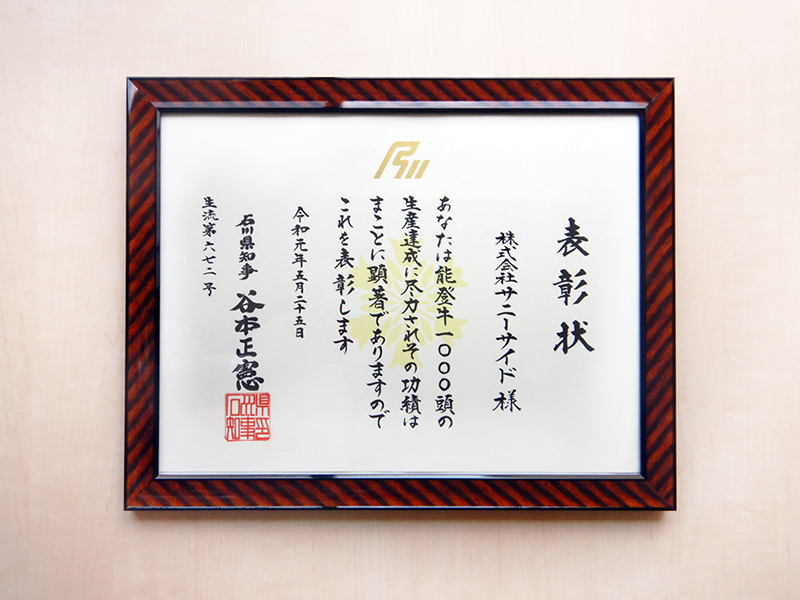 表彰状
株式会社サニーサイド様
あなたは能登牛一〇〇〇頭の
生産達成に尽力されその功績は
まことに顕著でありますので
これを表彰します
令和元年五月二十五日
石川県知事 谷本正憲
石川県知事印
生流第六七二号